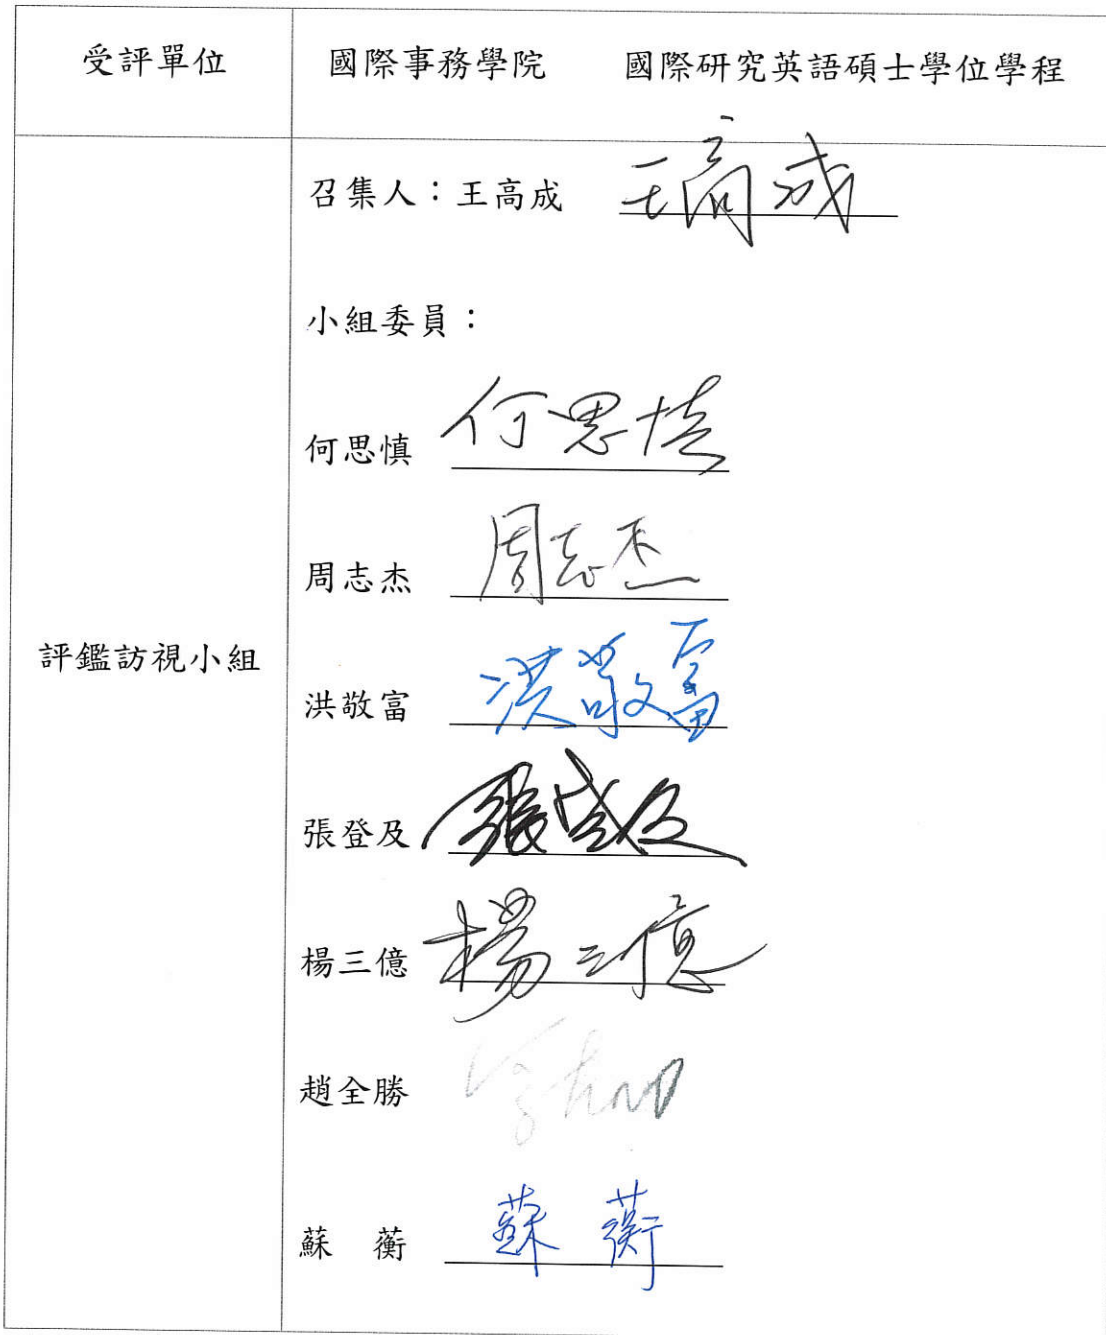 受評單位 國際事務學院 國際研究英語碩士學位學程
評鑑訪視小組
召集人：王高成 王高成
小組委員：
何思慎 何思慎
周志杰 周志杰
洪敬富 洪敬富
張登及 張登及
楊三億 楊三億
趙全勝
蘇 蘅 蘇 蘅